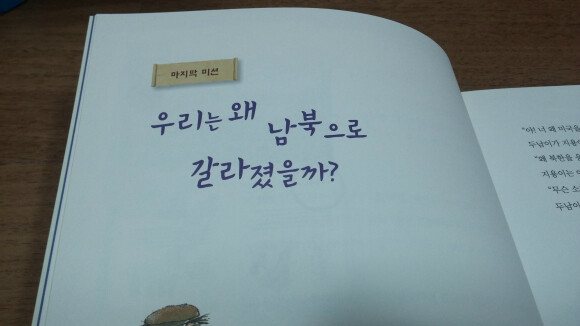 마지막 미션
우리는 왜 남북으로
갈라졌을까?
"야! 너 왜 미국을
두남이가 지용이
"왜 북한을
지용이는
"무슨 소
두남이